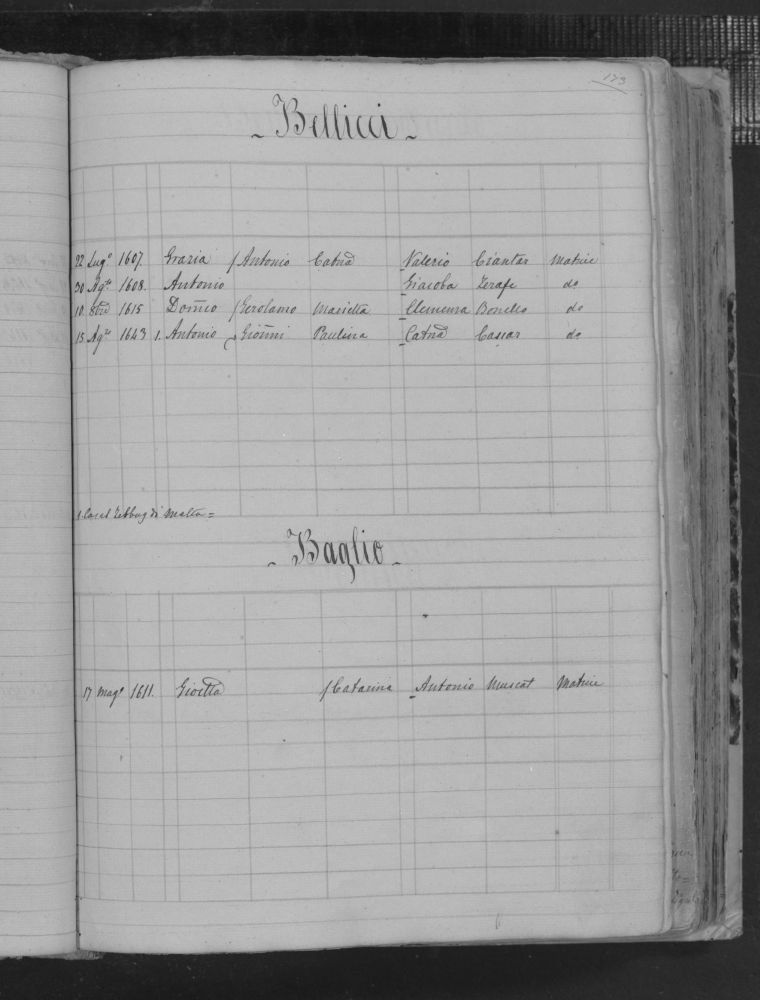 173
- Bellicci -
22 Lug.o 1607. Grazia f Antonio Catnã Valerio Ciantar Matrice
30 Ag.to 1608. Antonio Giacoba Zerafe do
10. 8bre 1615 Dom̃co f Gerolamo Marietta Clemenza Bonello do
15 Ag.to 1643 1. Antonio f Gioñni Paulina Catnã Cassar do
1. Casal Zebbug di Malta =
- Baglio -
17 Mag.o 1611. f Catarina Antonio Muscat Matrice